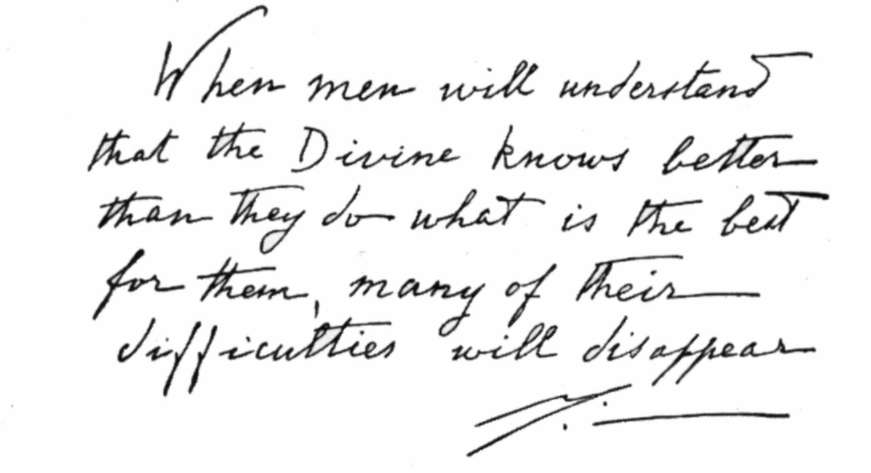 When men will understand
that the Divine knows better
than they do what is the best
for them, many of their
difficulties will disappear